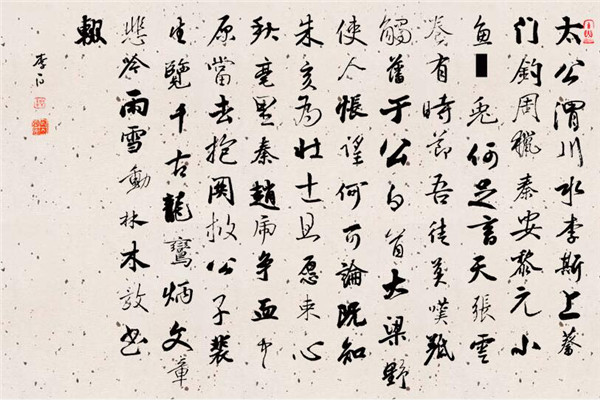 太公渭川水李斯上蔡
门釣周獵秦安黎元小
鱼兔何足言天張雲
卷有時節吾徒莫嘆羝
觸藩于公白首大梁野
使人悵望何可論既知
朱亥為壯士且愿束心
秋毫里秦趙虎争血中
原當去抱関救公子裴
生覽千古龍鸞炳文章
悲吟雨雪動林木放书
輟
李白